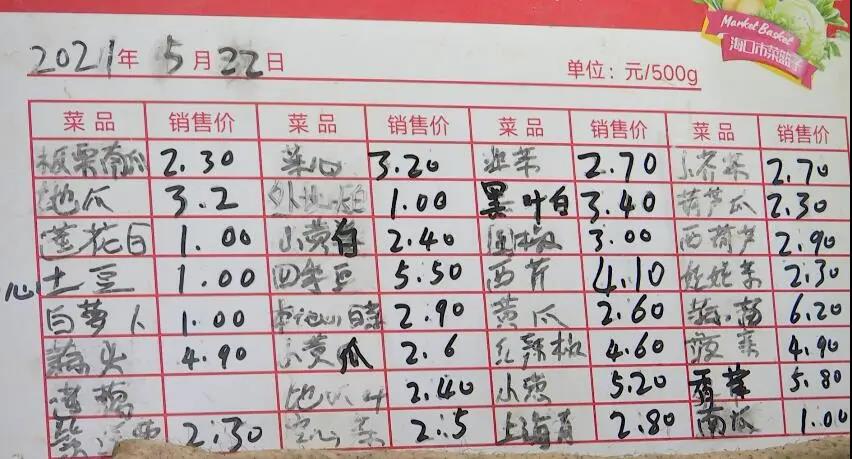 Market Basket
海口市菜篮子
2021年 5月22日 单位：元/500g
菜品 销售价 菜品 销售价 菜品 销售价 菜品 销售价
板栗南瓜 2.30 菜心 3.20 韭菜 2.70 小芥菜 2.70
地瓜 3.2 1.00 黑叶白 3.40 葫芦瓜 2.30
莲花白 1.00 小黄白 2.40 3.00 西葫芦 2.90
心土豆 1.00 四季豆 5.50 西芹 4.10 2.30
白萝卜 1.00 2.90 黄瓜 2.60 6.20
蒜头 4.90 小黄瓜 2.6 红辣椒 4.60 4.90
2.40 小葱 5.20 香菜 5.80
2.30 空心菜 2.5 上海青 2.80 南瓜 1.00